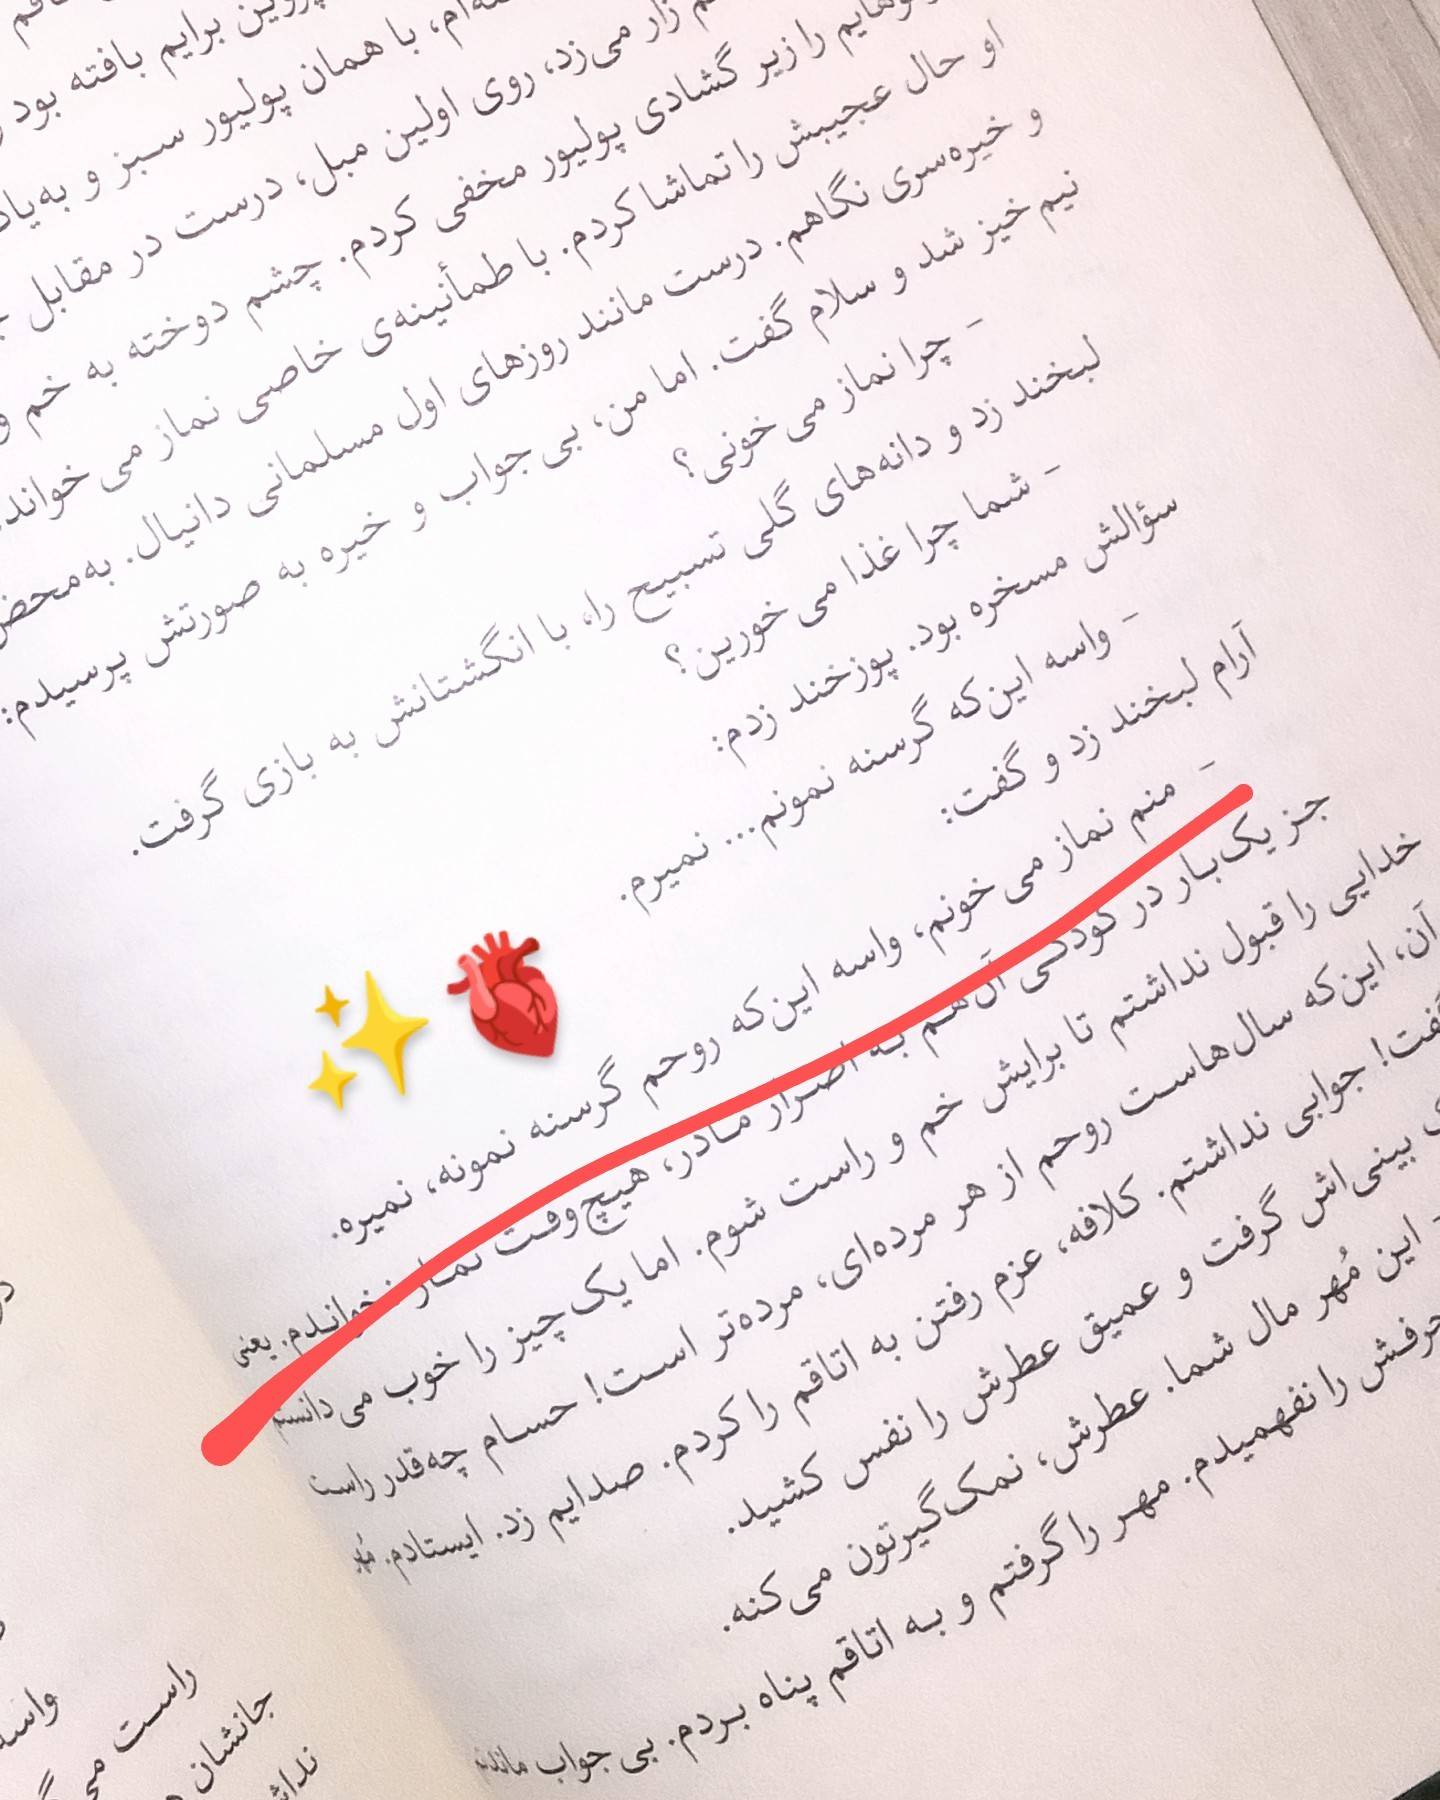 پروین برایم بافته بود
با همان پولیور سبز و به‌یاد
زار می‌زد، روی اولین مبل، درست در مقابل
را زیر گشادی پولیور مخفی کردم. چشم دوخته به خم و
او حال عجیبش را تماشا کردم. با طمأنینه‌ی خاصی نماز می‌خواند.
و خیره‌سری نگاهم. درست مانند روزهای اول مسلمانی دانیال. به‌محض
نیم خیز شد و سلام گفت. اما من، بی‌جواب و خیره به صورتش پرسیدم:
- چرا نماز می‌خونی؟
لبخند زد و دانه‌های گلی تسبیح را، با انگشتانش به بازی گرفت.
- شما چرا غذا می‌خورین؟
سؤالش مسخره بود. پوزخند زدم:
- واسه این‌که گرسنه نمونم... نمیرم.
آرام لبخند زد و گفت:
- منم نماز می‌خونم، واسه این‌که روحم گرسنه نمونه، نمیره.
جز یک‌بار در کودکی آن‌هم به اصرار مادر، هیچ‌وقت نماز نخواندم. یعنی
خدایی را قبول نداشتم تا برایش خم و راست شوم. اما یک‌چیز را خوب می‌دانستم
آن، این‌که سال‌هاست روحم از هر مرده‌ای، مرده‌تر است! حسام چه‌قدر راست
جوابی نداشتم. کلافه، عزم رفتن به اتاقم را کردم. صدایم زد. ایستادم. مُهر
بینی‌اش گرفت و عمیق عطرش را نفس کشید.
- این مُهر مال شما. عطرش، نمک‌گیرتون می‌کنه.
حرفش را نفهمیدم. مهر را گرفتم و به اتاقم پناه بردم. بی‌جواب
راست
جانشان
واسه